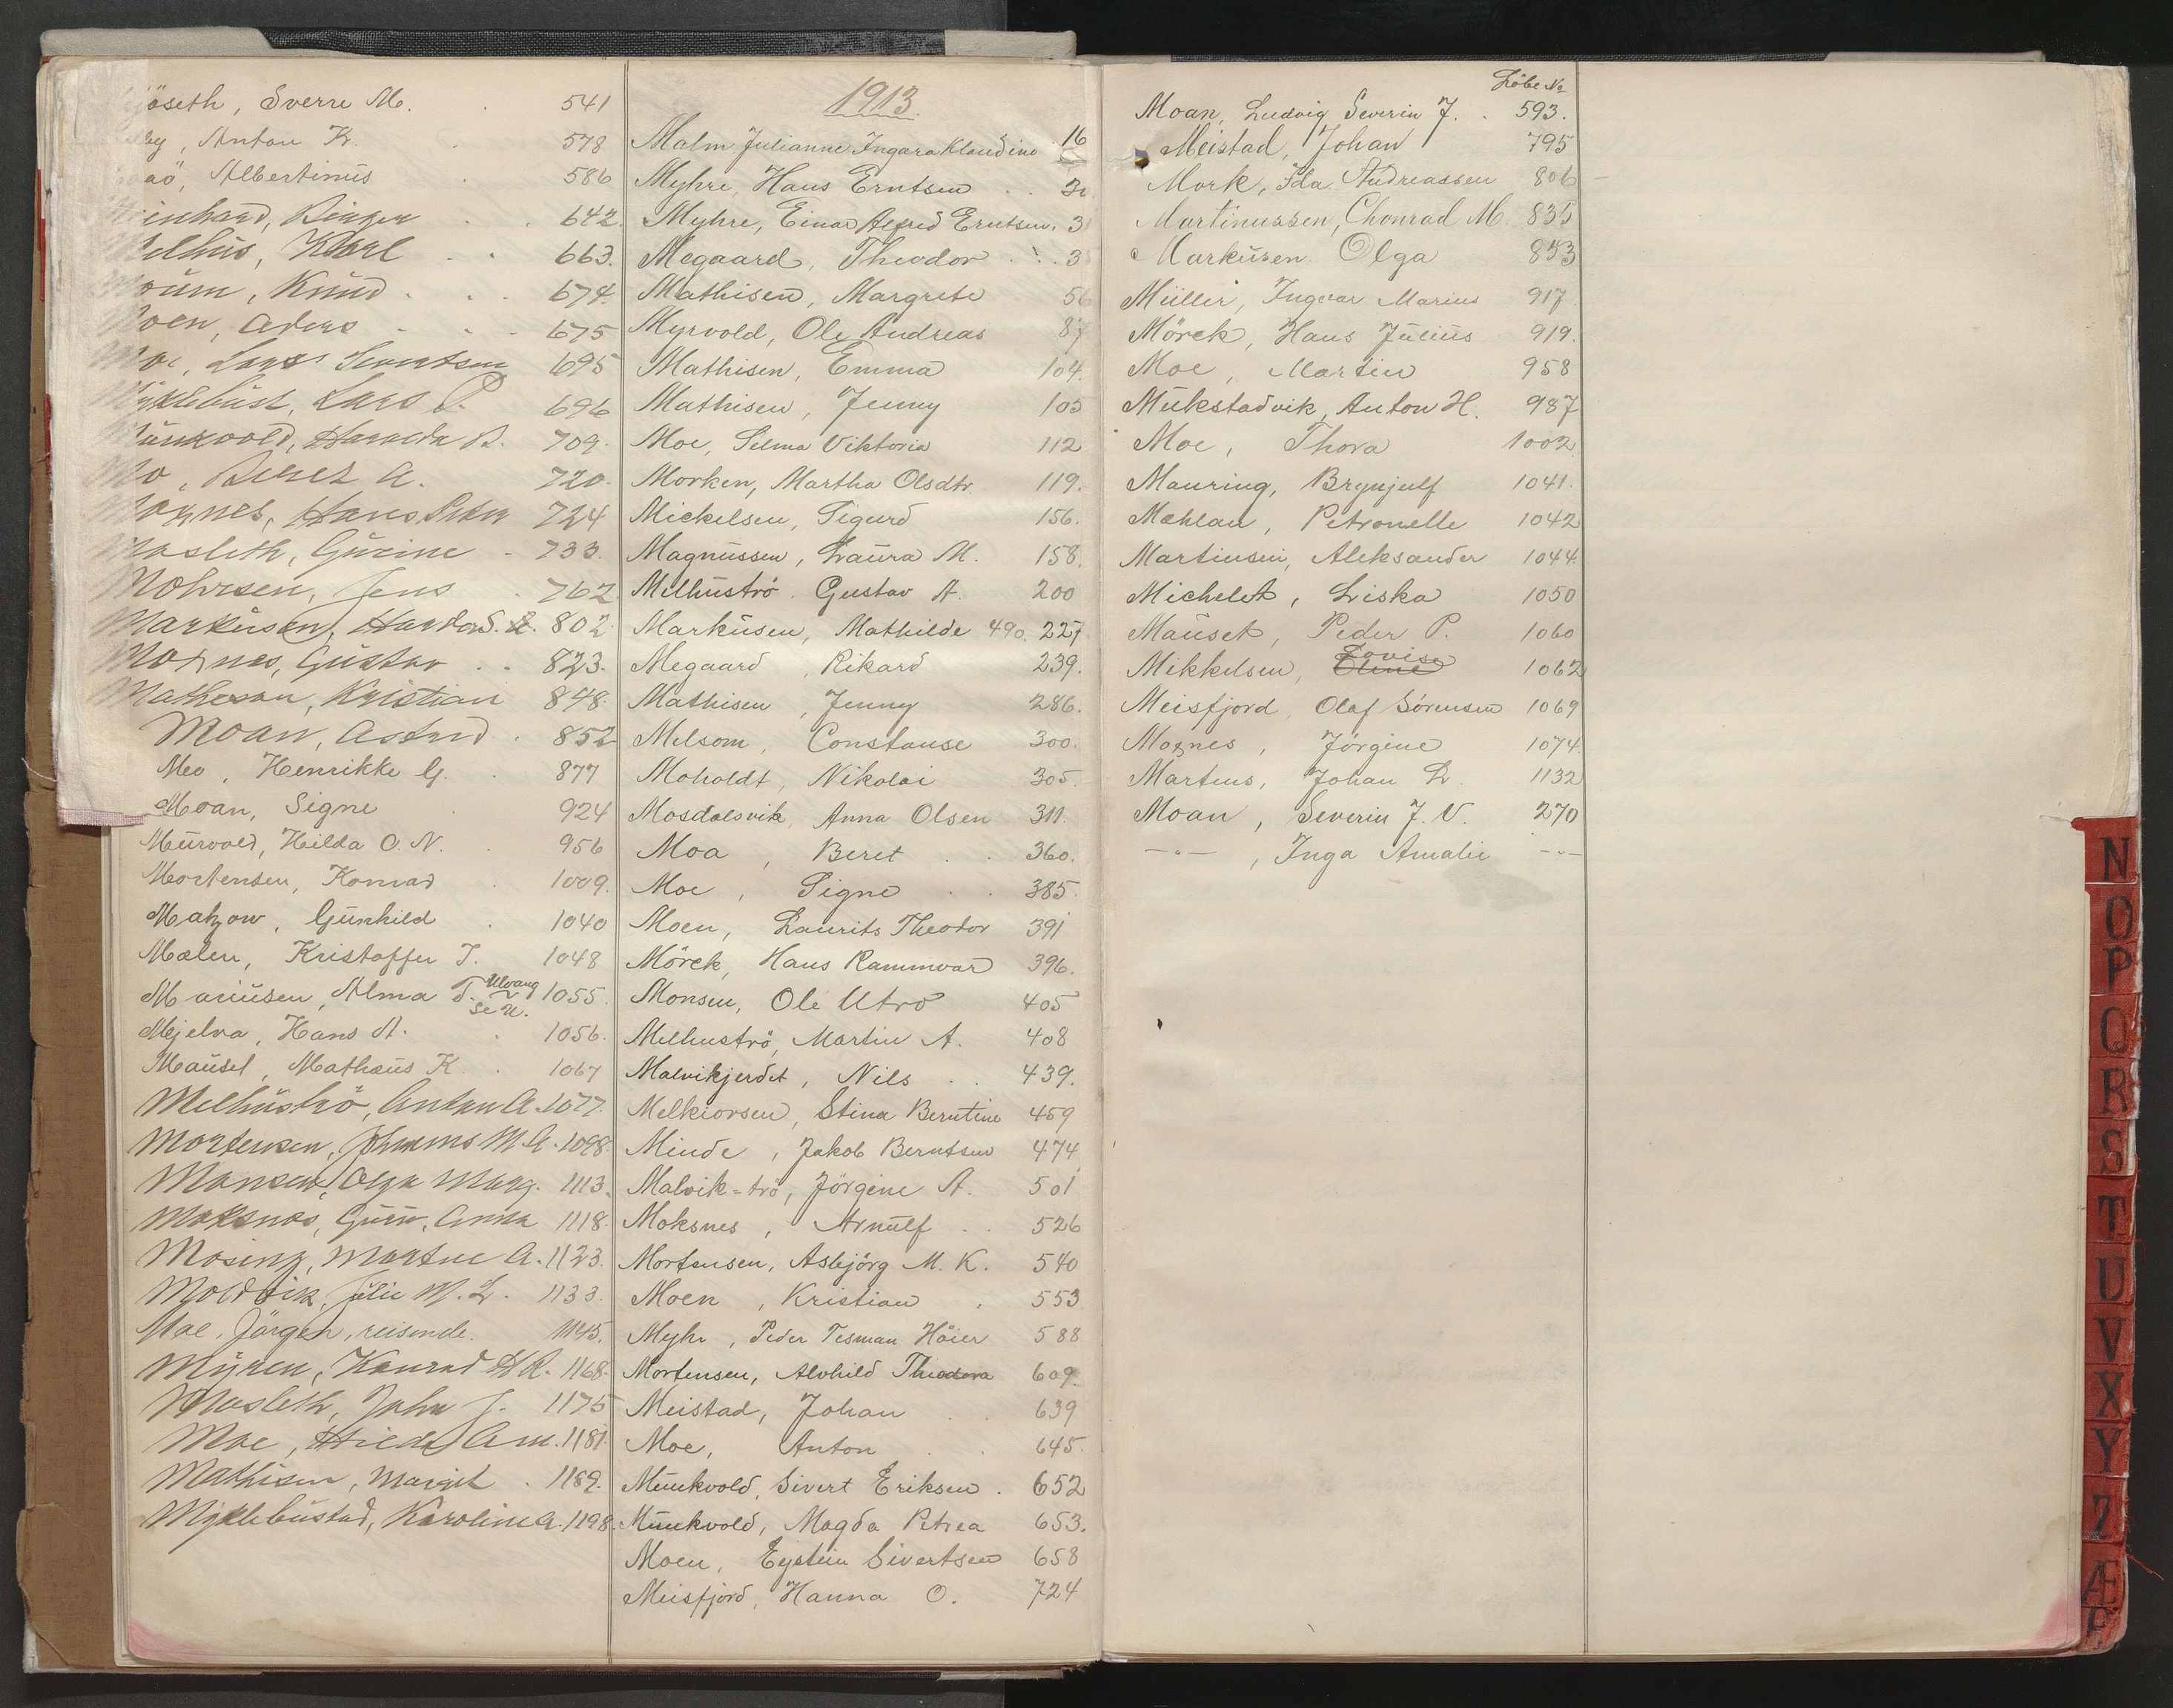 öseth, Sverre M. 541
by, Anton K. 578
aö, Albertinus 586
einhard, Birger 642.
elhus, Karl 663.
oum, Knud 674.
oen, Anders 675
Moe, Lars Sivertsen 695
Myklebust, Lars P. 696
Munkvold, Haralda B. 709.
Mo, Beret A. 720.
Moxnes, Hans Peter 724
Masleth, Gurine 733.
Mohrsen, Jens 762
Markusen, Harda S. 802.
Moxnes, Gustav 823.
Mathesen, Kristian 848.
Moan, Astrid 852
Meo, Henrikke G. 877
Moan, Signe 924
Murvold, Hilda O. N. 956
Mortensen, Konrad 1009.
Matzow, Gunhild 1040
Mælen, Kristoffer J. 1048
Mariusen, Alma T. Ulvang se U. 1055.
Mjelva, Hans A. 1056.
Mausel, Mathæus K. 1067
Melhuströ, Anton A. 1077.
Mortensen, Johannes M. A. 1098.
Monsen, Olga Marg. 1113.
Moksnes, Guru, Anna 1118.
Mosing, Martin A. 1123.
Moldvik, Julie M. L. 1133.
Moe, Jörgen, reisende. 1145.
Myren, Konrad H R. 1168.
Masleth, John J. 1175
Moe, Hilda Am. 1181.
Mathisen, Margit 1189.
Myklebustad, Karoline A. 1198.
1913.
Malm Julianne Ingara Klaudine 16
Myhre, Hans Erntsen 3
Myhre, Einar Alfred Erntsen. 3
Megaard, Theodor 3
Mathisen, Margrete 56
Myrvold, Ole Andreas 87
Mathisen, Emma 104.
Mathisen, Jenny 105
Moe, Selma Viktoria 112
Morken, Martha Olsdtr. 119.
Mickelsen, Sigurd 156.
Magnussen, Laura M. 158.
Melhuströ. Gustav A. 200
Markusen, Mathilde 490. 227.
Megaard, Rikard 239.
Mathisen, Jenny 286.
Melsom, Constanse 300.
Moholdt, Nikolai 305.
Mosdalsvik, Anna Olsen 311.
Moa, Beret 360.
Moe, Signe 385.
Moen, Laurits Theodor 391
Mörck, Hans Rammvar 396.
Monsen, Ole Utrö 405
Melhuströ, Martin A. 408
Malvikjerdet, Nils 439.
Melkiorsen, Stina Berntine 459
Minde, Jakob Berntsen 474
Malvik=trö, Jörgine A. 501
Moksnes, Arnulf 526
Mortensen, Asbjörg M. K. 540
Moen, Kristian 553
Myhr, Peder Tesman Höier 588
Mortensen, Alvhild Theodora 609.
Meistad, Johan 639
Moe, Anton 645.
Munkvold, Sivert Eriksen. 652
Munkvold, Magda Petrea 653.
Moen, Eystein Sivertsen 658
Meisfjord, Hanna O. 724
Löbe №
Moan, Ludvig Severin J. 593.
Meistad, Johan 795
Mork, Ida Andreassen 806
Martinussen, Chonrad M. 835
Markusen. Olga 853
Müller, Ingvar Marius 917.
Mörck, Hans Julius 919.
Moe, Martin 958
Mukstadvik, Anton H. 987
Moe, Thora 1002
Mauring, Brynjulf 1041.
Mæhlan, Petronelle 1042
Martinsen, Aleksander 1044.
Michelet, Liska 1050
Mauset, Peder P. 1060
Mikkelsen, Oline Lovise 1062
Meisfjord, Olaf Sörensen 1069
Moxnes, Jörgine 1074.
Martens, Johan L. 1132
Moan, Severin J. V. 270
—"—, Inga Amalie -"-
N
O
P
Q
R
S
T
U
V
X
Y
Z
Æ